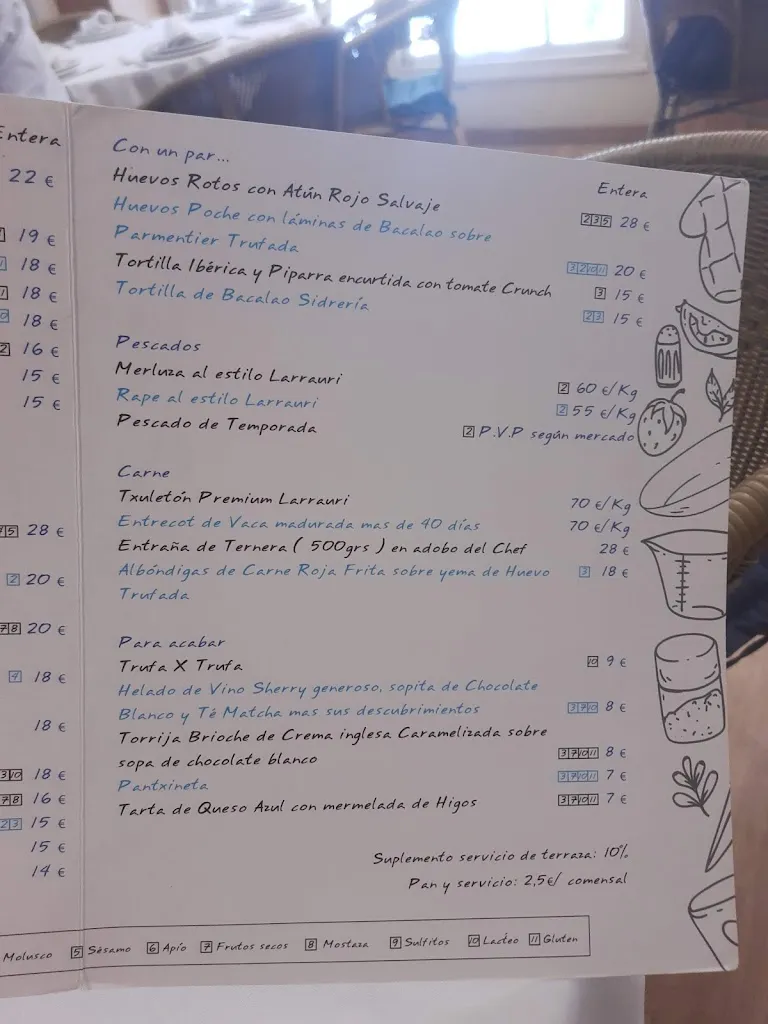 Entera
22 €
19 €
18 €
18 €
18 €
16 €
15 €
15 €
28 €
2 20 €
7 8 20 €
4 18 €
18 €
3 10 18 €
7 8 16 €
2 3 15 €
15 €
14 €
Con un par...
Entera
Huevos Rotos con Atún Rojo Salvaje 2 3 5 28 €
Huevos Poche con láminas de Bacalao sobre
Parmentier Trufada 3 2 10 11 20 €
Tortilla Ibérica y Piparra encurtida con tomate Crunch 3 15 €
Tortilla de Bacalao Sidrería 2 3 15 €
Pescados
Merluza al estilo Larrauri 2 60 €/Kg
Rape al estilo Larrauri 2 55 €/Kg
Pescado de Temporada 2 P.V.P según mercado
Carne
Txuletón Premium Larrauri 70 €/Kg
Entrecot de Vaca madurada mas de 40 días 70 €/Kg
Entraña de Ternera ( 500grs ) en adobo del Chef 28 €
Albóndigas de Carne Roja Frita sobre yema de Huevo 3 18 €
Trufada
Para acabar
Trufa X Trufa 10 9 €
Helado de Vino Sherry generoso, sopita de Chocolate
Blanco y Té Matcha mas sus descubrimientos 3 7 10 8 €
Torrija Brioche de Crema inglesa Caramelizada sobre
sopa de chocolate blanco 3 7 10 11 8 €
Pantxineta 3 7 10 11 7 €
Tarta de Queso Azul con mermelada de Higos 3 7 10 11 7 €
Suplemento servicio de terraza: 10%
Pan y servicio: 2,5€/ comensal
Molusco 5 Sésamo 6 Apio 7 Frutos secos 8 Mostaza 9 Sulfitos 10 Lacteo 11 Gluten